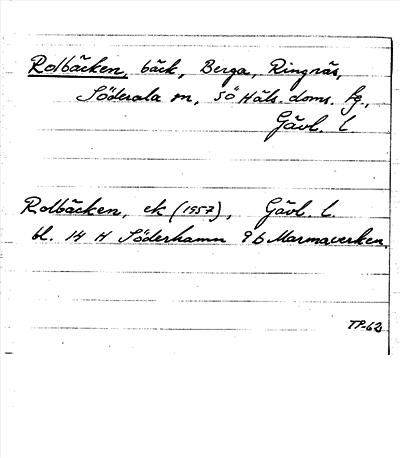 Rolbäcken, bäck, Berga, Ringnäs,
Söderala sn, SÖ Häls. doms. fg.,
Gävl. l.
Rolbäcken, ek (1957), Gävl. l.
bl. 14 H Söderhamn 9 b Marmaverken.
TP-62